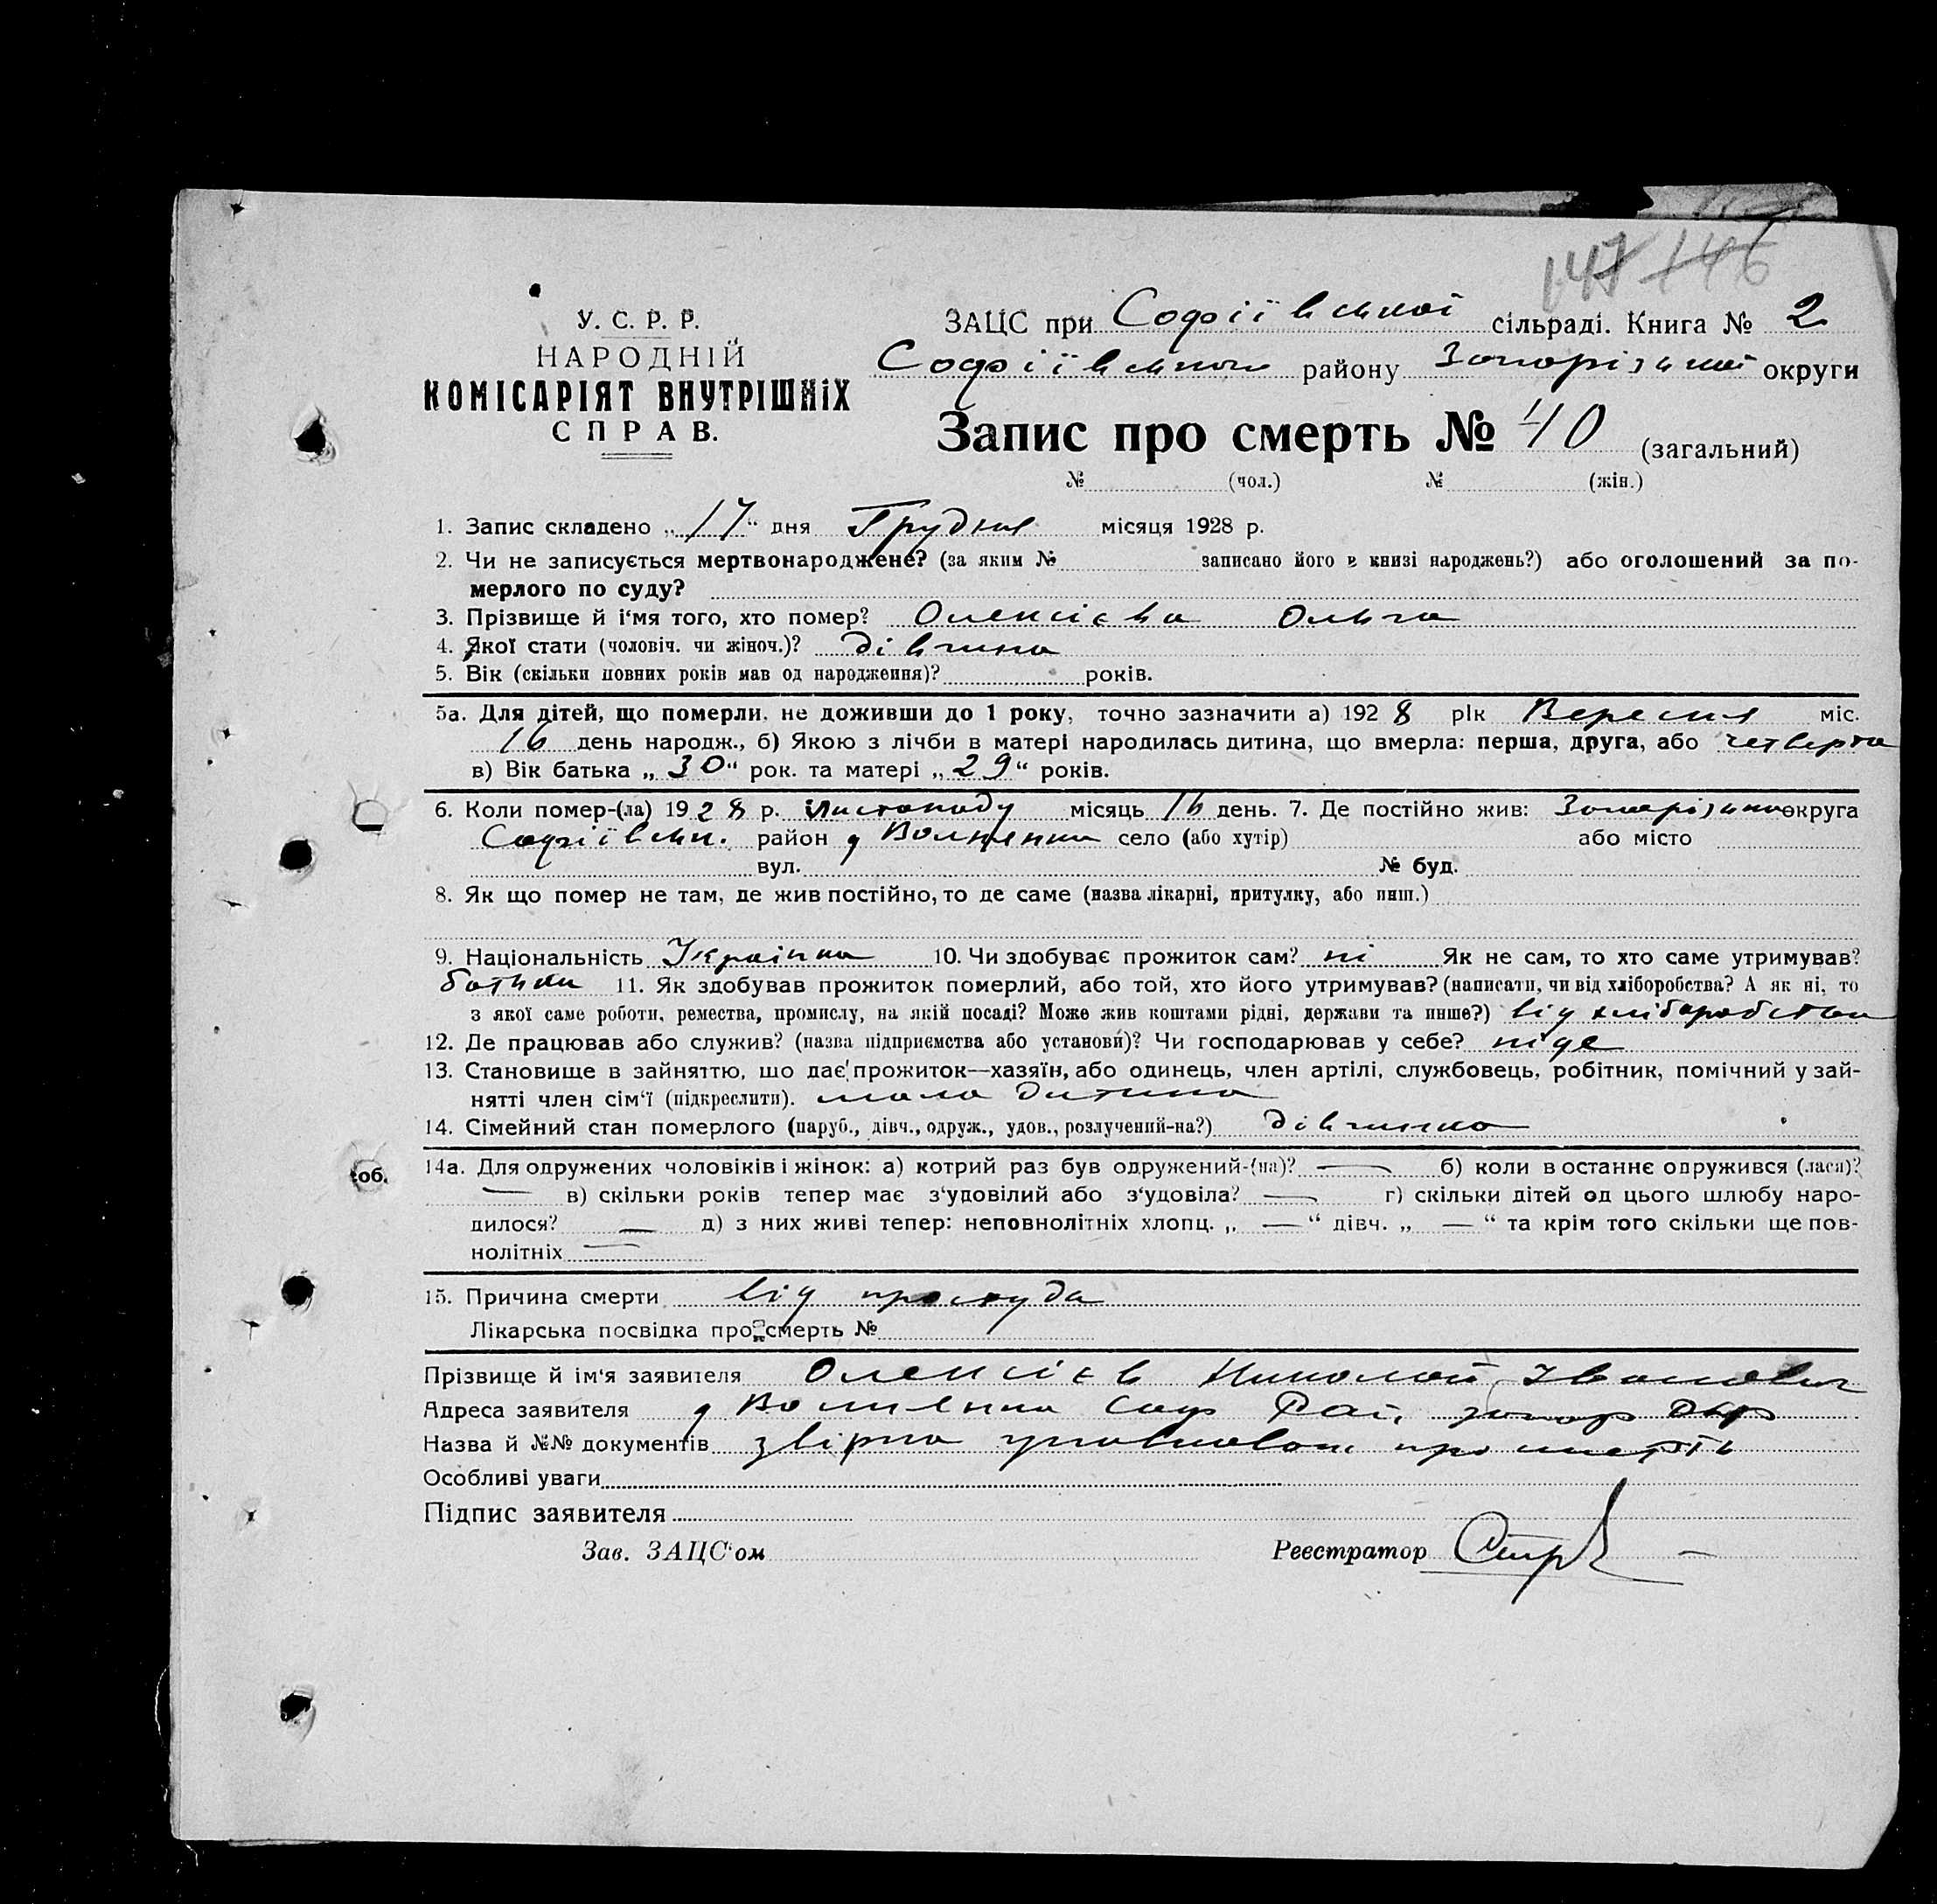 147 146
У. С. Р. Р.
НАРОДНІЙ
КОМІСАРІЯТ ВНУТРІШНІХ
СПРАВ.
ЗАЦС при Софіївській сільраді. Книга № 2
Софіївського району Запорізької округи
Запис про смерть № 40 (загальний)
№ (чол.) № (жін.)
1. Запис складено „17“ дня Грудня місяця 1928 р.
2. Чи не записується мертвонароджене? (за яким № записано його в книзі народжень?) або оголошений за по-
мерлого по суду?
3. Прізвище й і‘мя того, хто помер? Олексієва Ольга
4. Якої стати (чоловіч. чи жіноч.)? дівчина
5. Вік (скільки повних років мав од народження)? років.
5а. Для дітей, що померли, не доживши до 1 року, точно зазначити а) 1928 рік Вересня міс.
16 день народж., б) Якою з лічби в матері народилась дитина, що вмерла: перша, друга, або четверта
в) Вік батька „30“ рок. та матері „29“ років.
6. Коли помер-(ла) 1928 р. Листопаду місяць 16 день. 7. Де постійно жив: округа
Софіївськ. район село (або хутір) або місто
вул. № буд.
8. Як що помер не там, де жив постійно, то де саме (назва лікарні, притулку, або инш.)
9. Національність Українка 10. Чи здобуває прожиток сам? ні Як не сам, то хто саме утримував?
батьки 11. Як здобував прожиток померлий, або той, хто його утримував? (написати, чи від хліборобства? А як ні, то
з якої саме роботи, ремества, промислу, на якій посаді? Може жив коштами рідні, держави та инше?) від хліборобства
12. Де працював або служив? (назва підприємства або установи)? Чи господарював у себе? ніде
13. Становище в зайняттю, що дає прожиток—хазяїн, або одинець, член артілі, службовець, робітник, помічний у зай-
нятті член сім‘ї (підкреслити). мала дитина
14. Сімейний стан померлого (паруб., дівч., одруж., удов., розлучений-на?) дівчинка
об.
14а. Для одружених чоловіків і жінок: а) котрий раз був одружений-(на)? — б) коли в останнє одружився (лася)?
— в) скільки років тепер має з‘удовілий або з‘удовіла? — г) скільки дітей од цього шлюбу наро-
дилося? — д) з них живі тепер: неповнолітніх хлопц. „ — “ дівч. „ — “ та крім того скільки ще пов-
нолітніх —
15. Причина смерти від простуда
Лікарська посвідка про смерть №
Прізвище й ім‘я заявителя Олексієв Николай Іванович
Адреса заявителя Соф Рай
Назва й №№ документів про смерть
Особливі уваги
Підпис заявителя
Зав. ЗАЦС‘ом Реєстратор